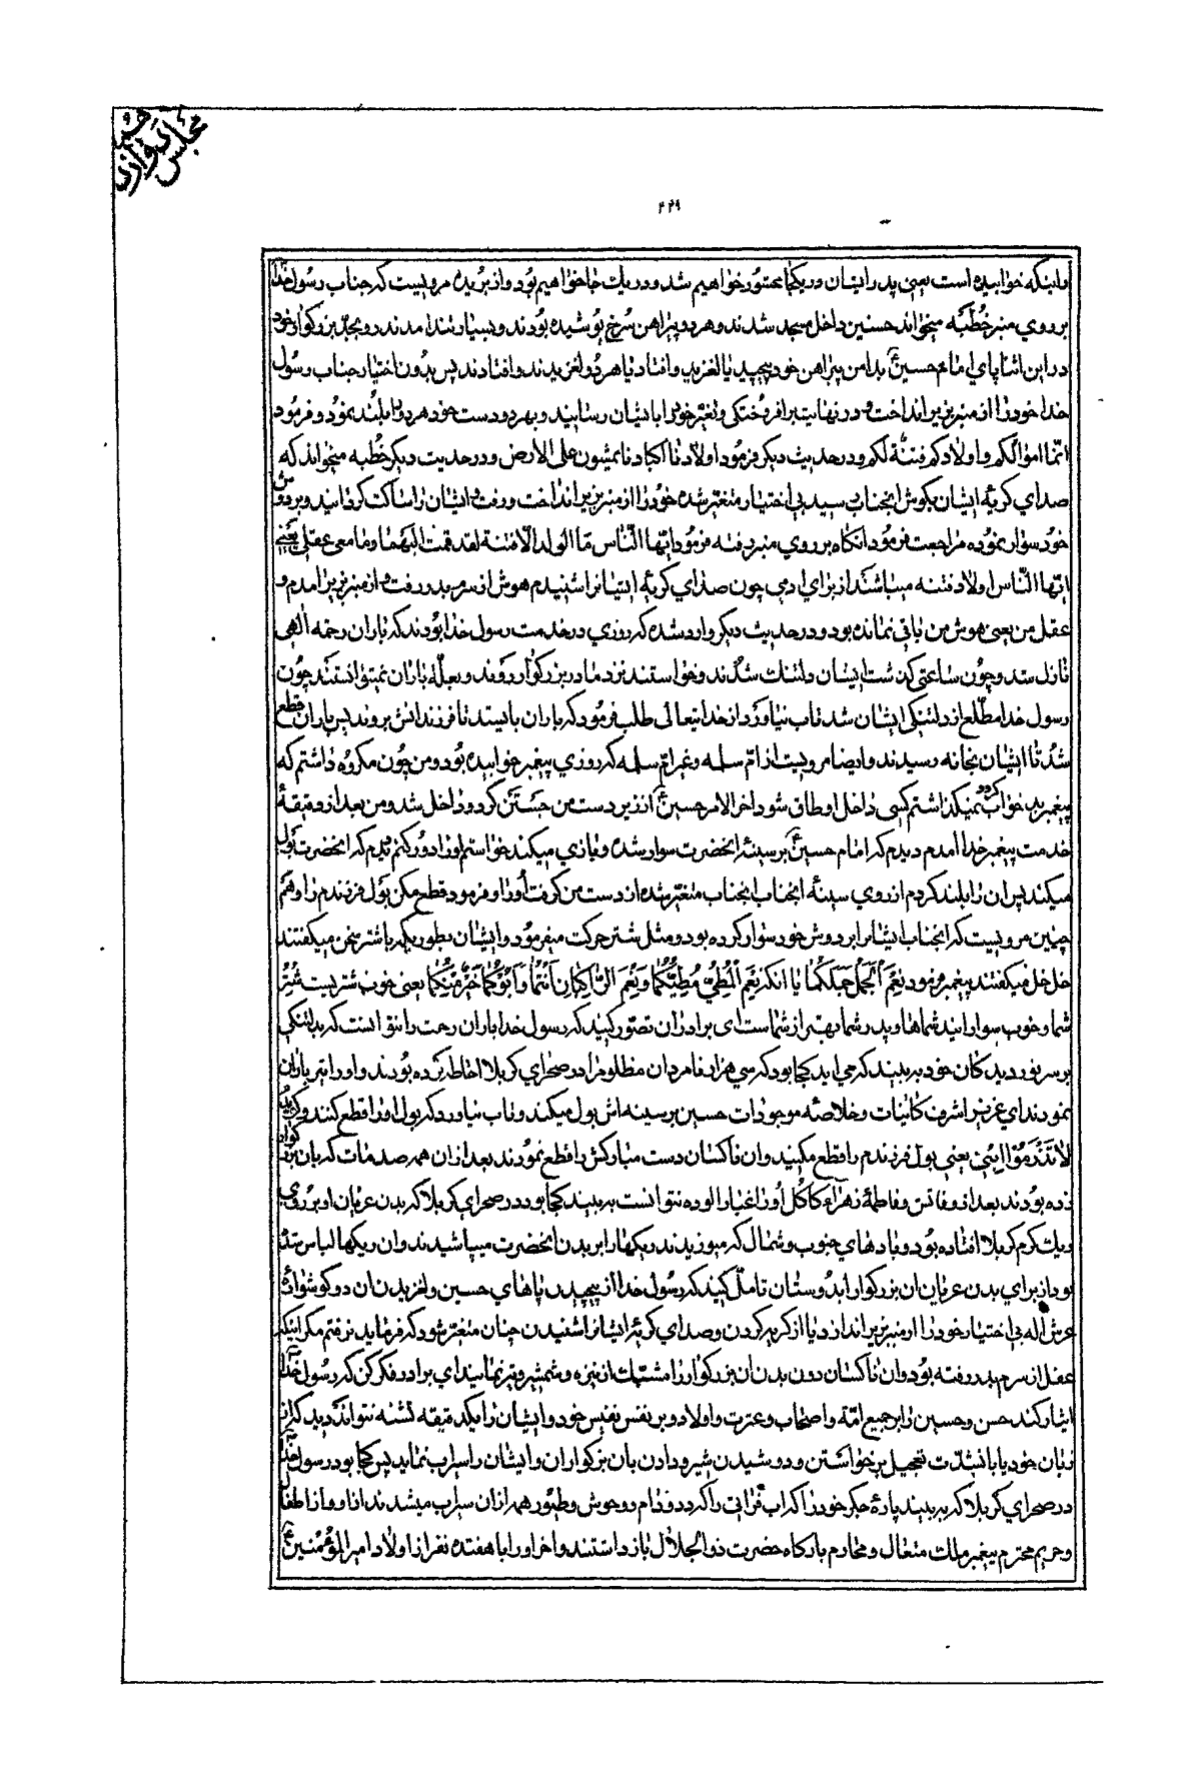 مجلس دوازدهم
۲۲۹
واینکه خوابیده است یعنی پدر ایشان در یکجا محشور خواهیم شد و در یك جا خواهیم بود و از بریده مرویست که جناب رسول خدا
بر روی منبر خُطبَه میخواند حسنین داخل مسجد شدند و هر دو پیراهن سُرخ پوشیده بودند و بسیار تند امدند رو بجد بزرگوار خود
در این اثنا پای امام حسینؑ بدامن پیراهن خود پیچید یا لغزید و افتاد یا هر دو لغزیدند و افتادند پس بدون اختیار جناب رسول
خدا خود را از منبر بزیر انداخت و در نهایت برافروختگی و تغیّر خود را بایشان رسانید و بهر دو دست خود هر دو را بلند نمود و فرمود
انّما اموالکم و اولادکم فتنة لکم و در حدیث دیگر فرمود اولادنا اکبادنا یمشون علی الارض و در حدیث دیگر خُطبه میخواند که
صدای گریه ایشان بگوش انجناب رسید بی اختیار متغیّر شده خود را از منبر بزیر انداخت و رفت و ایشان را ساکت گردانید و بر دوش
خود سوار نموده مراجعت فرمود انگاه بر روی منبر رفته فرمود ایّها النّاس ما الولد الّا فتنة لقد قمت الیهما و ما معی عقلی یعنی
ایّها النّاس اولاد فتنه میباشند از برای ادمی چون صدای گریه ایشانرا شنیدم هوش از سرم بدر رفت و از منبر بزیر امدم و
عقل من یعنی هوش من باقی نمانده بود و در حدیث دیگر وارد شده که روزی در خدمت رسول خدا بودند که باران رحمه الهی
نازل شد و چون ساعتی گذشت ایشان دلتنك شدند و خواستند نزد مادر بزرگوار روند و بعلّه باران نمیتوانستند چون
رسول خدا مطّلع از دلتنگی ایشان شد تاب نیاورد از خدایتعالی طلب فرمود که باران بایستد تا فرزندانش بروند پس باران قطع
شد تا ایشان بخانه رسیدند و ایضا مرویست از امّ سلمه و غیر امّ سلمه که روزی پیغمبر خوابیده بود و من چون مکروه داشتم که
پیغمبر بد خواب گردد نمیگذاشتم کسی داخل اوطاق شود اخر الامر حسینؑ از زیر دست من جَستَن کرد و داخل شد و من بعد از دقیقهٔ
خدمت پیغمبر خدا امدم دیدم که امام حسینؑ بر سینهٔ انحضرت سوار شده و بازی میکند خواستم او را دور کنم دیدم که انحضرت بول
میکند پس ان را بلند کردم از روی سینهٔ انجناب انجناب متغیّر شده از دست من گرفت او را و فرمود قطع مکن بول فرزندم را و هم
چنین مرویست که انجناب ایشانرا بر دوش خود سوار کرده بود و مثل شتر حرکت میفرمود و ایشان بطوریکه باشتر سخن میگفتند
حل حل میگفتند پیغمبر فرمود نِعْمَ الْجَمَلُ جَمَلُکُما یا انکه نِعْمَ الْمَطِیُّ مَطِیُّکُما وَ نِعْمَ الرّاکِبانِ اَنْتُما وَ اَبُوکُما خَیْرٌ مِنْکُما یعنی خوب شتریست شتر
شما و خوب سوارانید شماها و پدر شما بهتر از شماست ای برادران تصوّر کنید که رسول خدا باران رحت را نتوانست که بدلتنگی
بر سر نور دیدگان خود ببیند کرمی اید کجا بود که سی هزار نامردان مظلومرا در صحرای کربلا احاطه کرده بودند و او را تیر باران
نمودند ای عزیز اشرف کائنات و خلاصه موجودات حسین بر سینه اش بول میکند و تاب نیاورد که بول او را قطع کنند و گوید
لا تَذْرَمُوا ابنی یعنی بول فرزندم را قطع مکنید و ان ناکسان دست مبارکش را قطع نمودند بعد از ان همه صدمات که بان بزرگوار
زده بودند بعد از وفاتش و فاطمهٔ زهراء کاکُل او را غبار الوده نتوانست ببیند کجا بود در صحرای کربلا که بدن عریان او بر روی
ریك گرم کربلا افتاده بود و بادهای جنوب و شمال که میوزیدند ریگها را بر بدن انحضرت میپاشیدند و ان ریگها لباس شده
بود از برای بدن عریان ان بزرگوار ای دوستان تامّل کنید که رسول خدا از پیچیدن پاهای حسین و لغزیدن ان دو گوشوارهٔ
عرش اله بی اختیار خود را از منبر بزیر اندازد یا از گریه کردن و صدای گریهٔ ایشانرا شنیدن چنان متغیّر شود که فرماید نرفتم مگر اینکه
عقل از سرم بدر رفته بود و ان ناکسان دون بدن ان بزرگوار را مشبّك از نیزه و شمشیر و تیر نمایند ای برادر فکر کن که رسول خدا
ایثار کند حسن و حسین را بر جمیع امّة و اصحاب و عترت و اولاد و بر نفس نفیس خود و ایشان را یکدقیقه تشنه نتواند دید که از
زبان خود یا باینشدّت تعجیل برخواستن و دوشیدن شیر و دادن بان بزگواران و ایشان را سیراب نماید پس کجا بود رسول خدا
در صحرای کربلا که ببیند پارهٔ جگر خود را که اب فراتی را که دد و دام و وحوش و طیور همه از ان سیراب میشدند از او و از اطفال
و حریم محترم پیغمبر ملك متعال و محارم بارگاه حضرت ذو الجلال باز داشتند و اخر او را با هفده نفر از اولاد امیر المؤمنینؑ